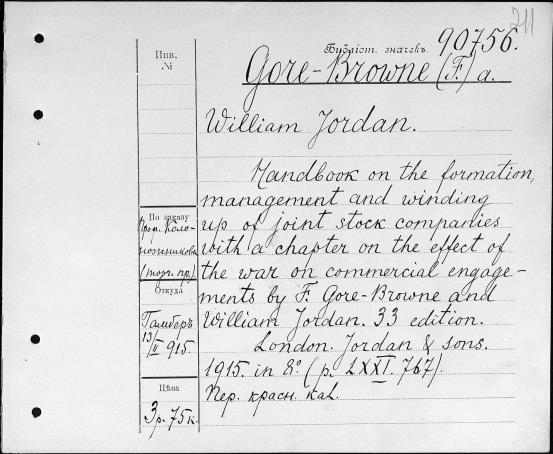 211
Библіот. значекъ 90756.
Инв.
№
Gore-Browne (F.) a.
William Jordan.
Handbook on the formation,
management and winding
up of joint stock companies
with a chapter on the effect of
the war on commercial engage-
ments by F. Gore-Browne and
William Jordan. 33 edition.
London. Jordan & sons.
1915. in 8° (p. LXXI. 767).
Пер. красн. кал.
По заказу
Проф. Коло-
ножникова
(торг. пр.)
Откуда
Гамберъ
13/II 915.
Цѣна
3 р. 75 к.